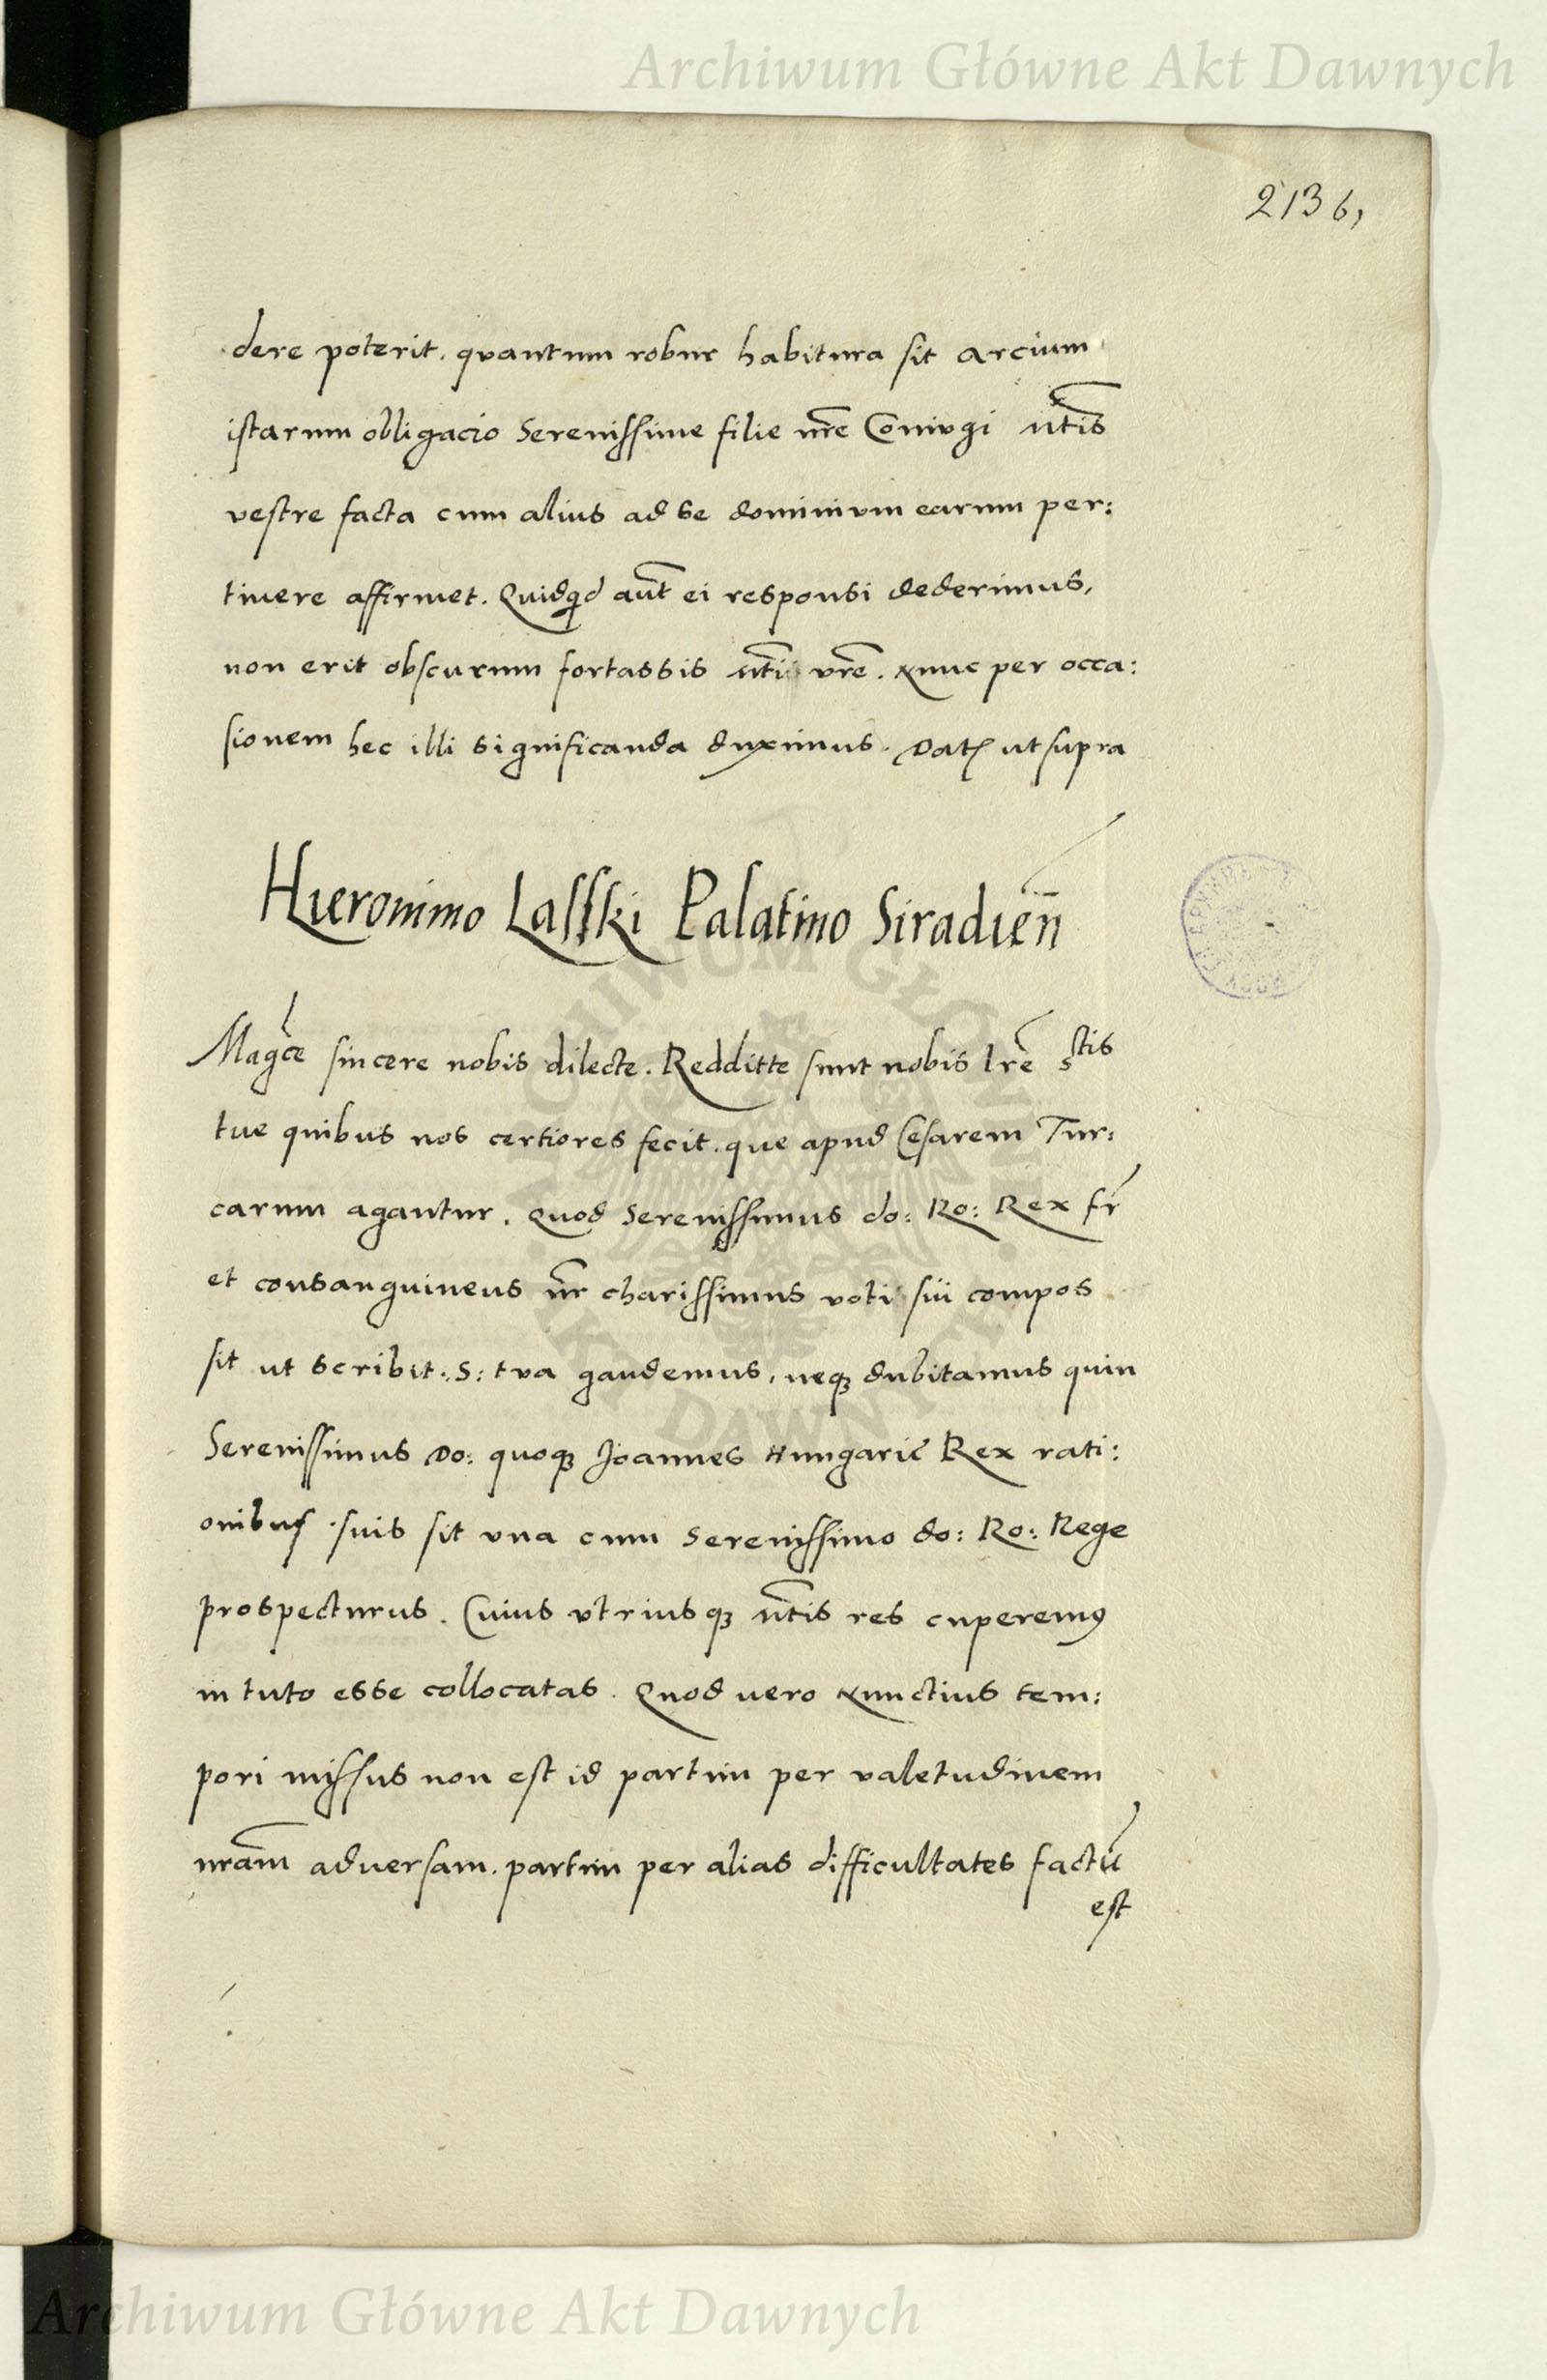 Archiwum Główne Akt Dawnych
2136,
dere poterit. quantum robur habitura sit arcium
istarum obligacio Serenissime filie nr̃e Coniugi
vestre facta cum alius ad se dominium earum per:
tinere affirmet. Quidqd aut̃ ei responsi dederimus,
non erit obscurum fortassis vr̃e. Nunc per occa:
sionem hec illi significanda duximus. Dat ut supra
Hieronimo Lasski Palatino Siradień
Magce sincere nobis dilecte. Redditte sunt nobis lr̃e Stis
tue quibus nos certiores fecit. que apud Cesarem Tur:
carum agantur. Quod Serenissimus do: Ro: Rex fr
et consanguineus nr̃ charissimus voti sui compos
sit ut scribit. S: tua gaudemus, neqꝫ dubitamus quin
Serenissimus Do: quoqꝫ Joannes Hungarie Rex rati:
onibus suis sit una cum Serenissimo do: Ro: Rege
prospecturus. Cuius utriusqꝫ res cuperemꝰ
in tuto esse collocatas. Quod vero Nunctius tem:
pori missus non est id partim per valetudinem
nrãm adversam. partim per alias difficultates factũ
est
ARCHIWUM GŁÓWNE AKT DAWNYCH
Archiwum Główne Akt Dawnych